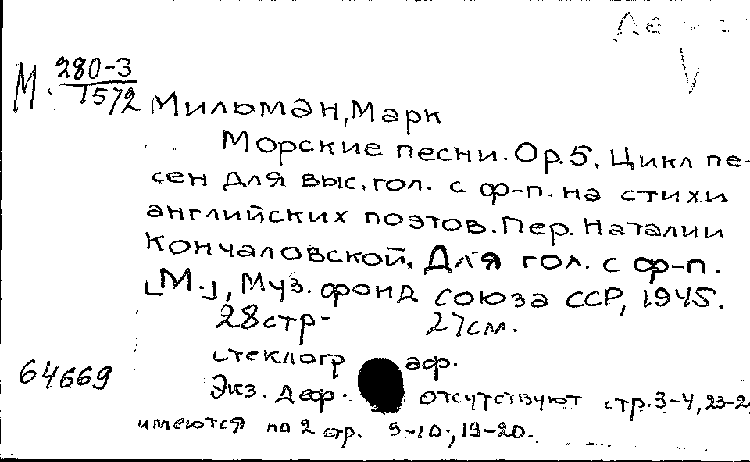 М. 280-3
1572
Мильман, Марк
Морские песни. Ор. 5. Цикл пе-
сен для выс. гол. с ф-п. на стихи
английских поэтов. Пер. Наталии
Кончаловской. Для гол. с ф-п.
[М.], Муз. фонд союза ССР, 1945.
28 стр- 27 см.
стеклогр аф.
64669
Экз. деф. отсутствуют стр. 3-4, 23-2
имеются по 2 стр. 9-10, 19-20.